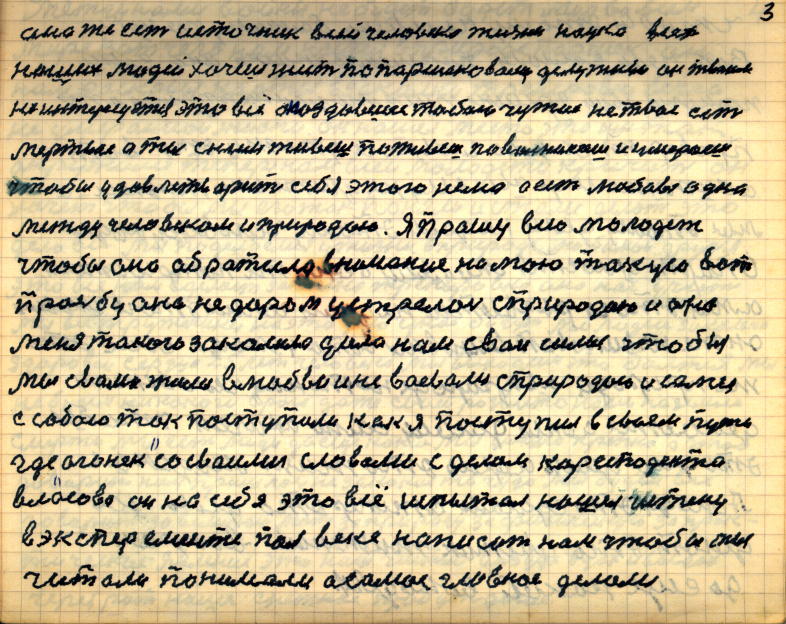 3
она же ест источник всей человека жизни наука всех
наших людей хочеш жит по паршековому делу живо он тваим
не интересуется это всё создавшое тобою чужие не твае ест
мертвае а ты с ним живеш поживеш поволнаваеш и умераеш
чтобы удовлетварит себя этого нема а ест любовь одна
между человеком и природаю. Я прошу всю молодеж
чтобы она обратила внимание на мою такую вот
прозбу она не даром устрелас с природаю и она
меня такого закалила дала нам сваи силы чтобы
мы с вами жили в любви и не ваевали с природаю и сами
с собаю так поступали как я поступил в своем путь
где огонек со сваими словами с делом каресподента
власова он на себя это всё испытал нашей читину
в эксперементе пол века написат нам чтобы мы
читали понимали а самое главное делали